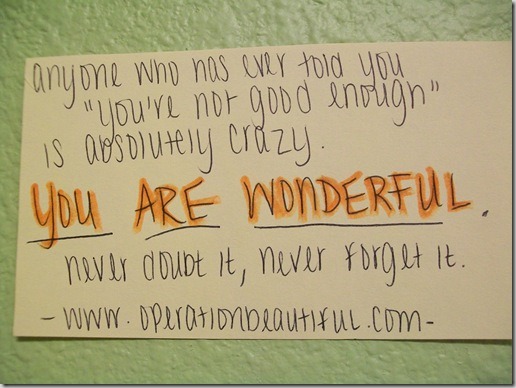 anyone who has ever told you
"you're not good enough"
is absolutely crazy.
YOU ARE WONDERFUL.
never doubt it, never forget it.
- www.operationbeautiful.com-